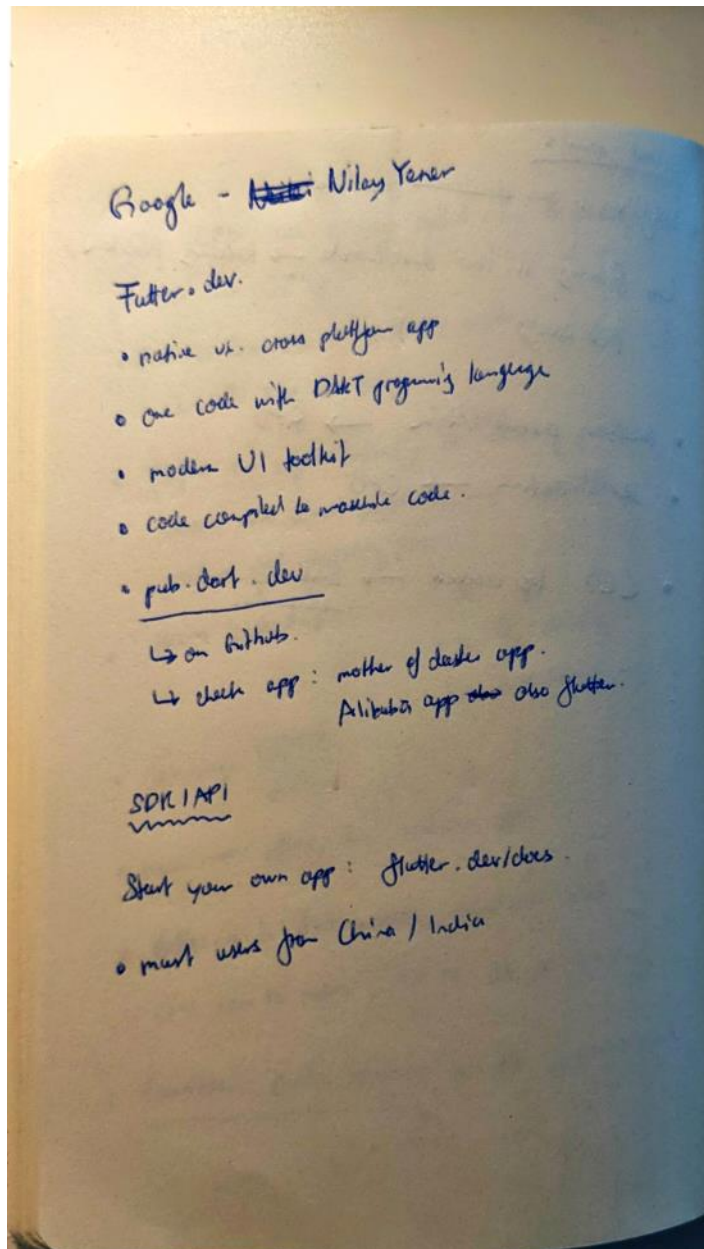 Google - Nilay Yener
Futter.dev.
• native vs. cross platfform app
• one code with DART programing language
• modern UI toolkit
• code compiled to maschile code.
• pub.dart.dev
↳ on Github.
↳ check app : mother of app.
Alibaba app also flutter.
SDK / API
Start your own app : flutter.dev/docs.
• must users from China / India